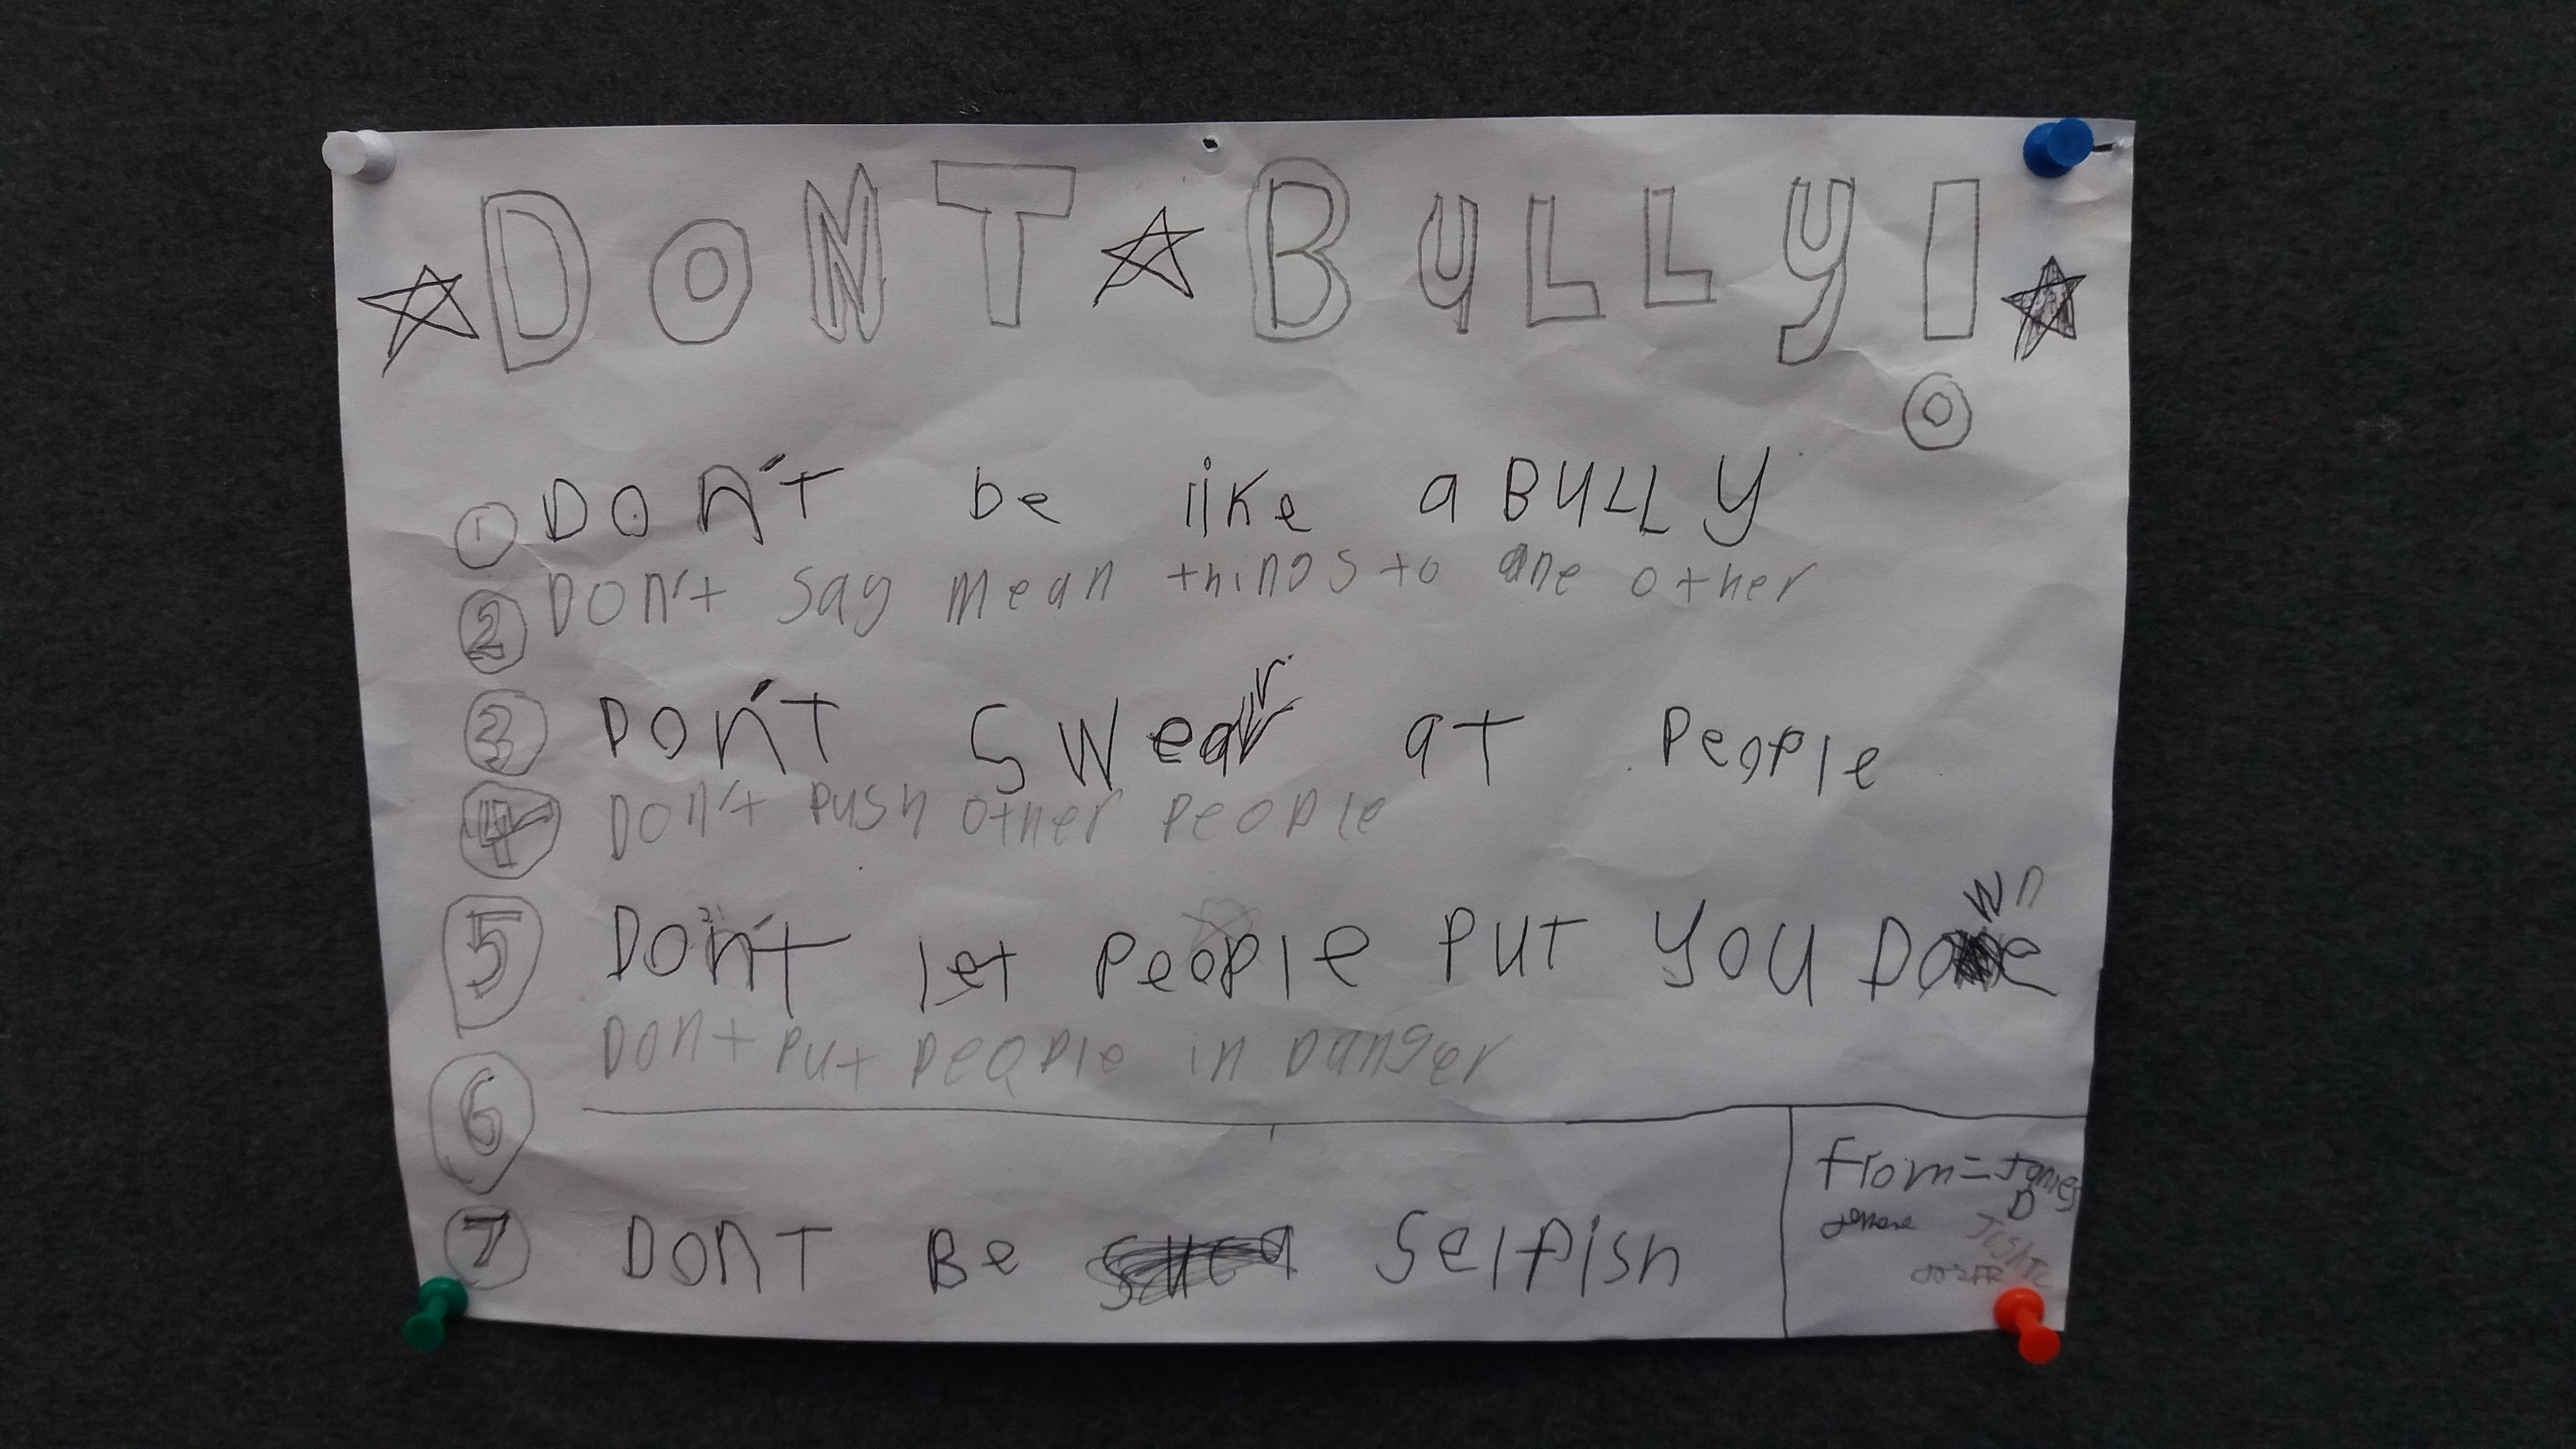 DONT BULLY!
1 DON'T be like a BULLY
2 DON't say mean things to one other
3 DON'T Swear at People
4 DON't Push other People
5 DON't let People PUT YOU DOwn
6 DONt Put People in Danger
7 DONT Be Selfish
from = James
D